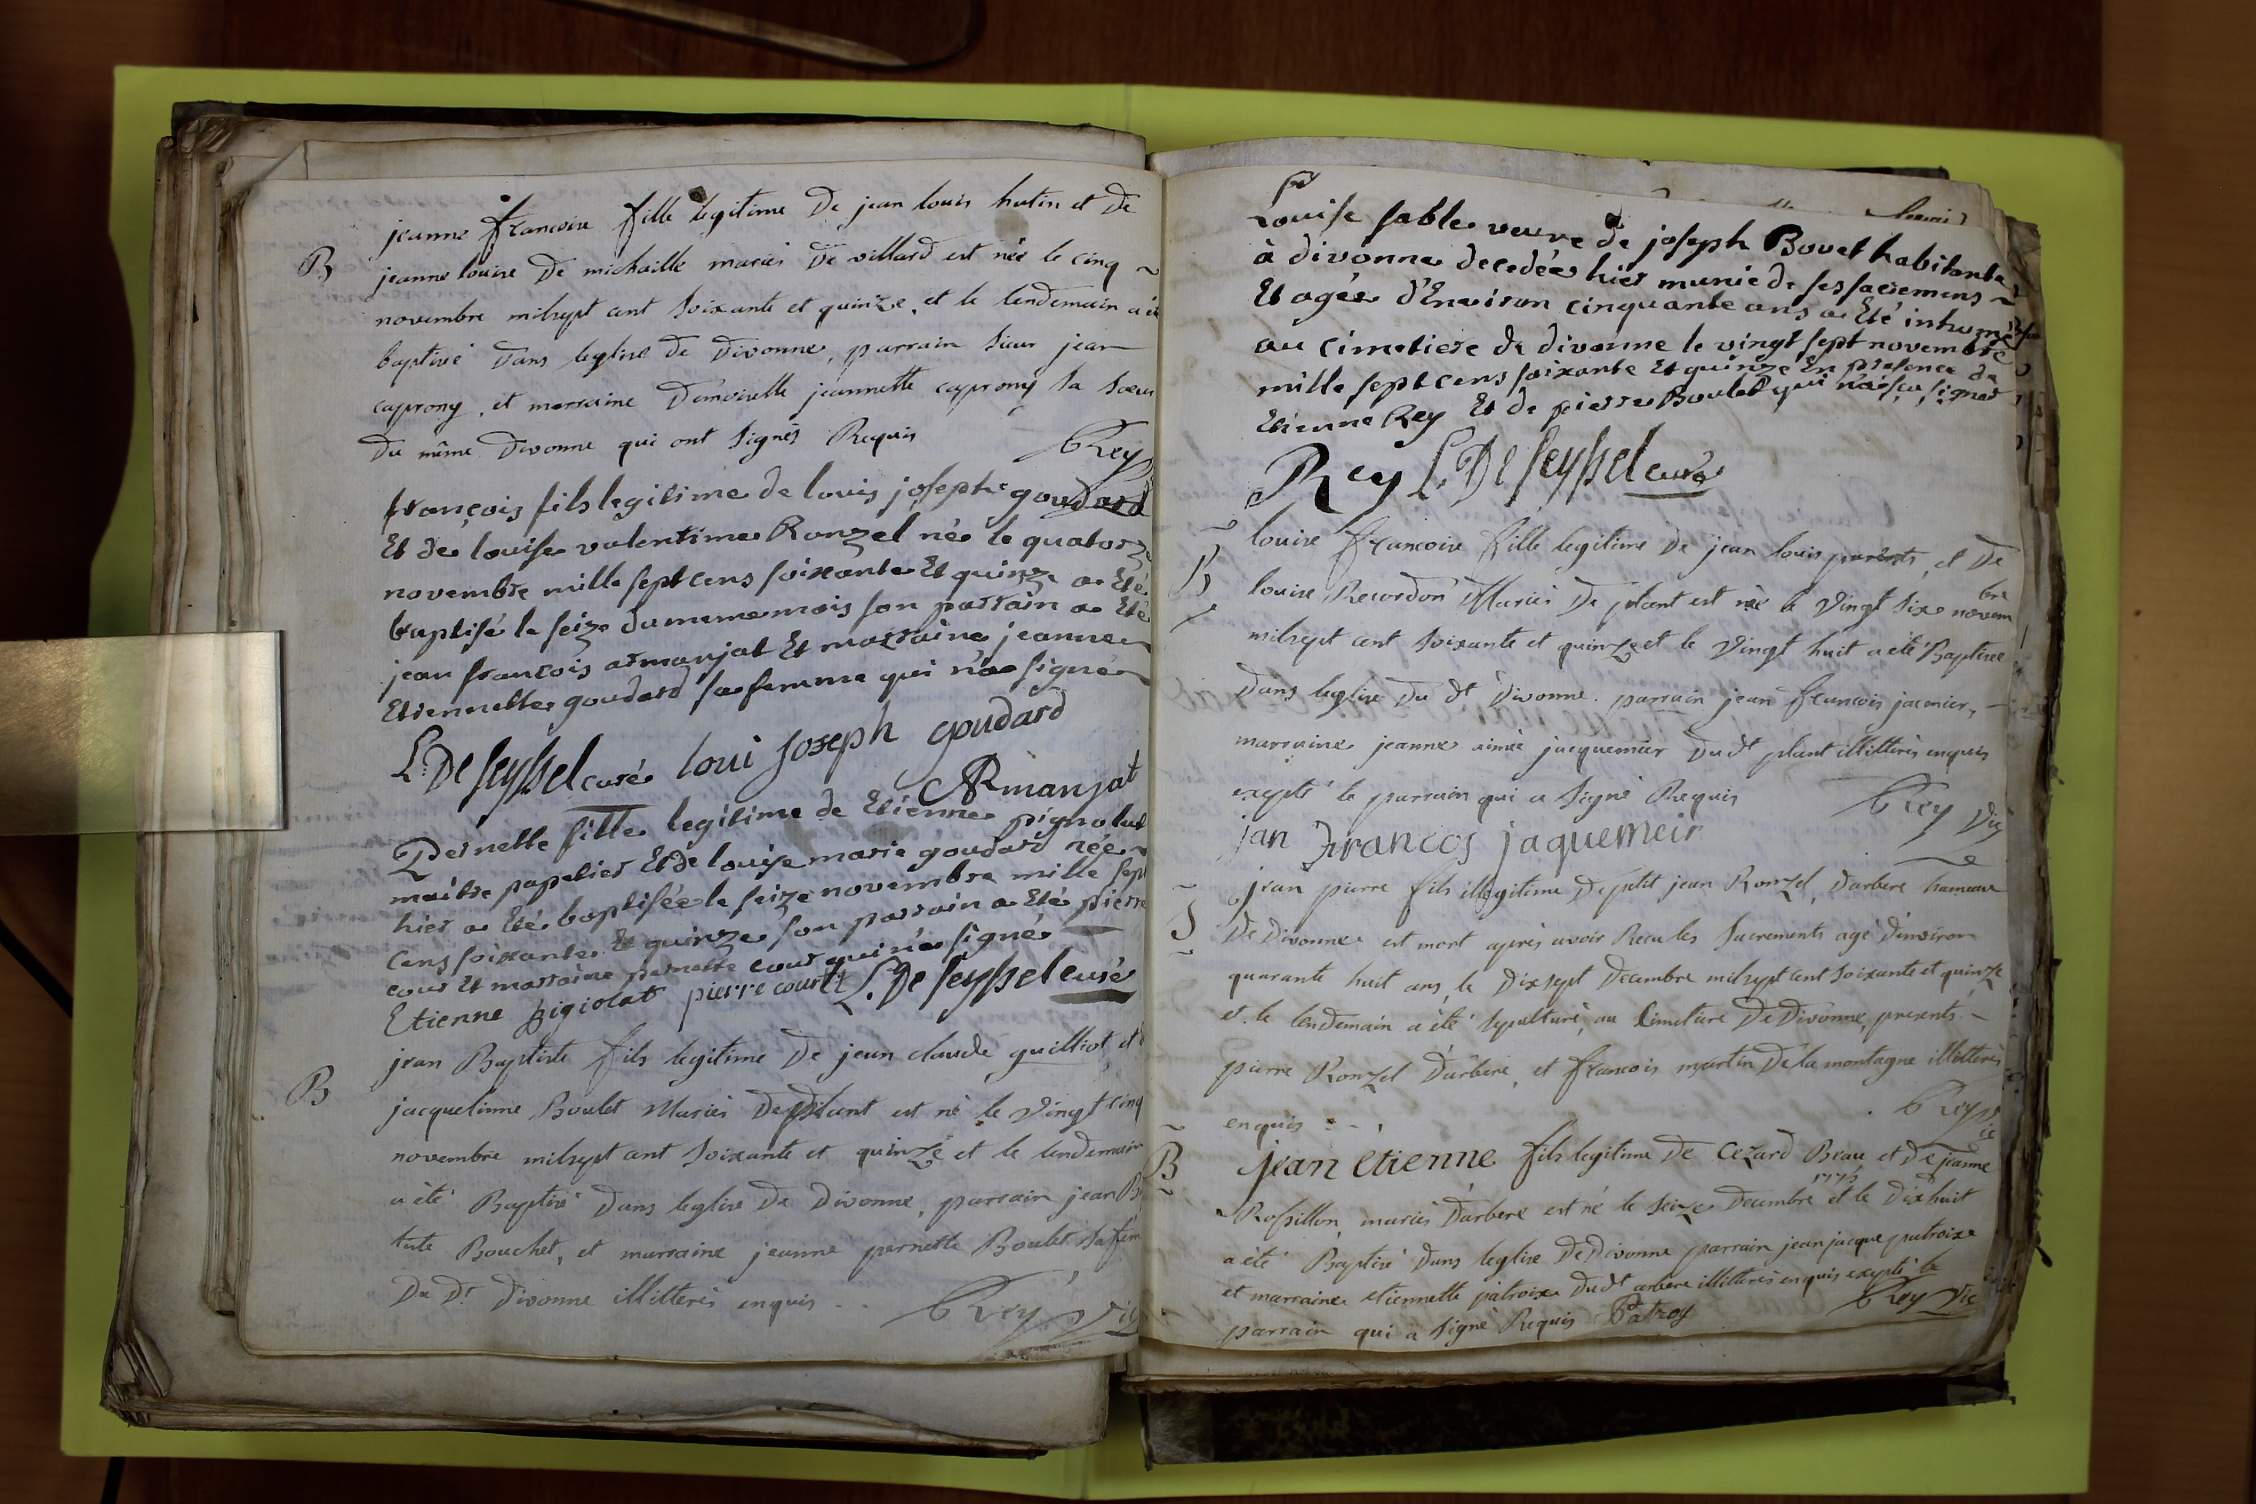 jeanne francoise fille legitime De jean louis hutin et De
B jeanne louise De michaille mariés De villard est née le cinq ~
novembre milsept cent soixante et quinze, et le lendemain a été
baptisé dans leglise de Divonne, parrain sieur jean
caprony, et marraine Demoiselle jeannette caprony sa soeur
du même Divonne qui ont signés Requis Rey
françois fils legitime de louis joseph goudard
Et de louise valentine Ronzel né le quatorze
novembre mille sept cens soixante Et quinze a Eté
baptisé le seize du meme mois son parrain a Eté
jean françois armanjat Et marraine jeanne
Etiennette goudard sa femme qui n'a signé
L. De seyssel curé loui Joseph goudard
ARmanjat
Pernette fille legitime de Etienne pignolat
maitre papetier Et de louise marie goudard née
hier a Eté baptisée le seize novembre mille sept
cens soixante Et quinze son parrain a Eté pierre
cour Et marraine pernette cour qui n'a signé
Etienne pigiolat pierre court L. De seyssel curé
jean Baptiste fils legitime De jean claude guilliot, et
B jacquelinne Boulet Mariés De plant est né le vingt cinq
novembre milsept cent soixante et quinze et le lendemain
a été Baptisé Dans leglise De Divonne, parrain jean B
tiste Bouchet, et marraine jeanne pernette Boulet sa fem
Du Dt Divonne illitterés enquis .. Rey Vic
Louise sable veuve de joseph Bovet habitante
à divonne decedée hier munie de ses sacremens ~
Et agée d'Environ cinquante ans a Eté inhumée
au cimetiere de divonne le vingt sept novembre
mille sept cens soixante Et quinze En presence de
Etienne Rey Et de pierre Boulet qui n'a sçu signer
Rey L. De seyssel curé
louise francoise fille legitime De jean louis parents, et De
B louise Recordon Mariés De plant est née le vingt six novembre
milsept cent soixante et quinze et le vingt huit a été Baptisée
Dans leglise Du dt Divonne. parrain jean francois jacmier,
marraine jeanne aimée jacquemier Dudt plant illitterés enquis
expté le parrain qui a signé Requis Rey Vic
jan Francos jaquemeir
jean pierre fils illegitime De petit jean Ronzel, Darbere hameau
S De Divonne est mort apres avoir Recu les Sacrements agé d'environ
quarante huit ans, le Dixsept Decembre milsept cent soixante et quinze
et le lendemain a été sepulturé, au Cimetiere De Divonne, presents
pierre Ronzel Darbere, et francois martin De la montagne illitterés
enquis - - , Rey Vic
B jean etienne fils legitime De Cezard Beau et De jeanne
1775
Rossillon mariés Darbere est né le seize Decembre et le Dixhuit
a été Baptisé Dans leglise De Divonne parrain jean jacque patroix
et marraine etiennette patroix Dudt arbere illitterés enquis expté le
parrain qui a signé Requis Patroy Rey Vic